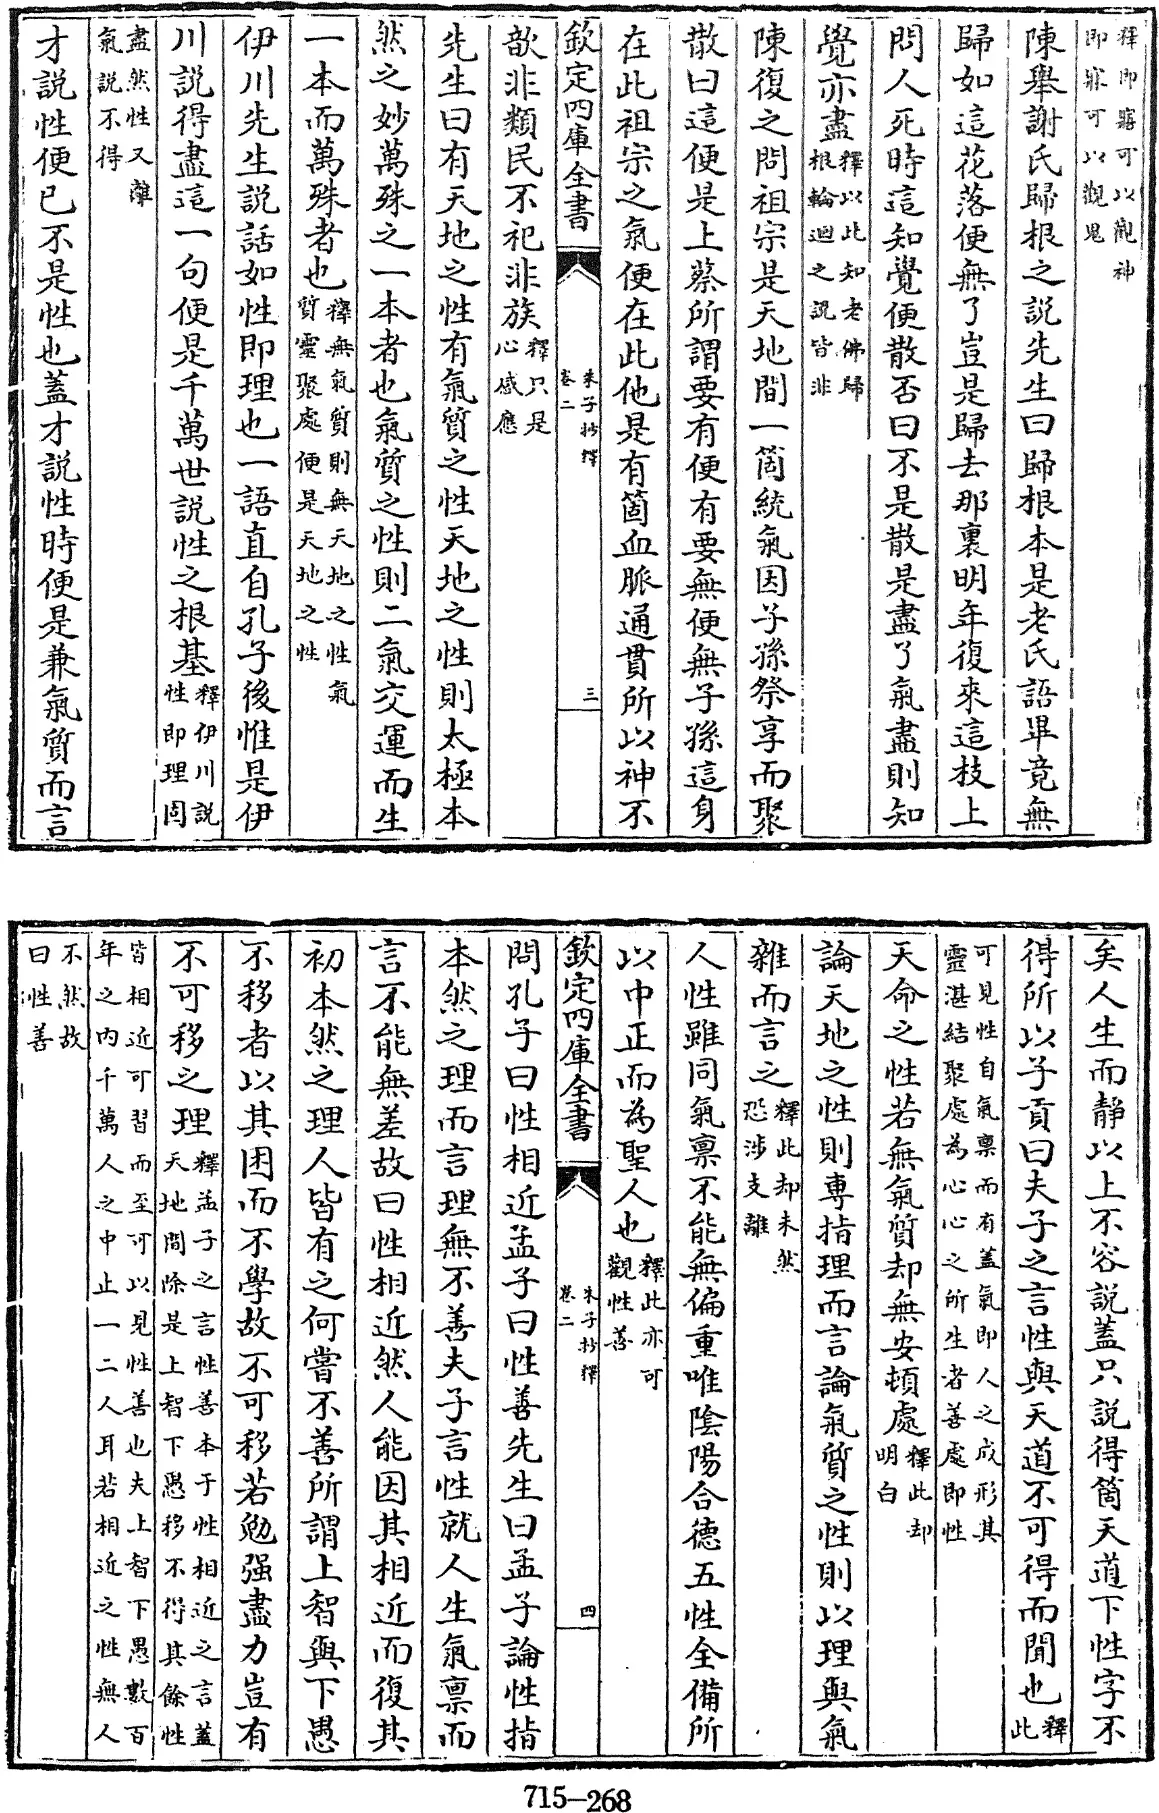 釋即寤可以觀神
即寐可以觀鬼
陳舉謝氏歸根之説先生曰歸根本是老氏語畢竟無
歸如這花落便無了豈是歸去那裏明年復來這枝上
問人死時這知覺便散否曰不是散是盡了氣盡則知
覺亦盡釋以此知老佛歸
根輪迴之說皆非
陳復之問祖宗是天地間一箇統氣因子孫祭享而聚
散曰這便是上蔡所謂要有便有要無便無子孫這身
在此祖宗之氣便在此他是有箇血脈通貫所以神不
欽定四庫全書
朱子抄釋
卷二
三
歆非類民不祀非族釋只是
心感應
先生曰有天地之性有氣質之性天地之性則太極本
然之妙萬殊之一本者也氣質之性則二氣交運而生
一本而萬殊者也釋無氣質則無天地之性氣
質靈聚處便是天地之性
伊川先生説話如性即理也一語直自孔子後惟是伊
川説得盡這一句便是千萬世説性之根基釋伊川說
性即理固
盡然性又離
氣說不得
才説性便已不是性也蓋才説性時便是兼氣質而言
矣人生而靜以上不容説蓋只説得箇天道下性字不
得所以子貢曰夫子之言性與天道不可得而聞也釋
此
可見性自氣稟而有蓋氣即人之成形其
靈湛結聚處為心心之所生者善處即性
天命之性若無氣質却無安頓處釋此却
明白
論天地之性則專指理而言論氣質之性則以理與氣
雜而言之釋此却未然
恐涉支離
人性雖同氣稟不能無偏重唯陰陽合德五性全備所
以中正而為聖人也釋此亦可
觀性善
欽定四庫全書
朱子抄釋
卷二
四
問孔子曰性相近孟子曰性善先生曰孟子論性指
本然之理而言理無不善夫子言性就人生氣稟而
言不能無差故曰性相近然人能因其相近而復其
初本然之理人皆有之何嘗不善所謂上智與下愚
不移者以其困而不學故不可移若勉强盡力豈有
不可移之理釋孟子之言性善本于性相近之言蓋
天地間除是上智下愚移不得其餘性
皆相近可習而至可以見性善也夫上智下愚數百
年之內千萬人之中止一二人耳若相近之性無人
不然故
曰性善
715-268